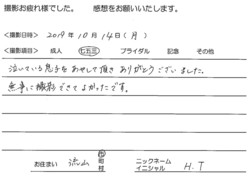 撮影お疲れ様でした。 感想をお願いいたします。
撮影日時 2019年 10月 14日(月)
撮影項目 成人 七五三 ブライダル 記念 その他
泣いている息子をあやして頂き ありがとうございました。
無事に撮影できてよかったです。
お住まい 流山 市 町 村 ニックネーム イニシャル H.T